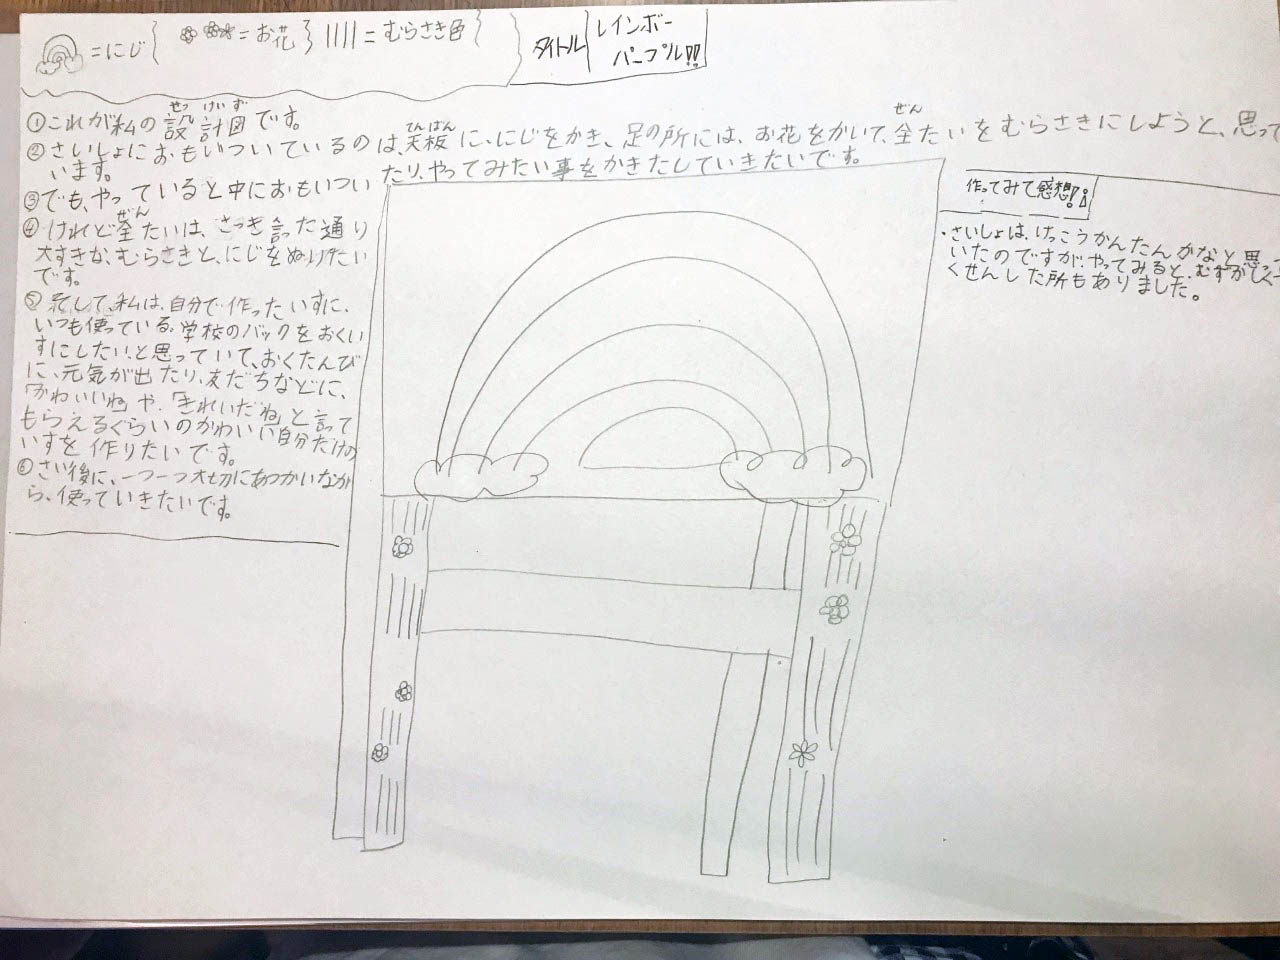 =にじ
=お花
||||=むらさき色
タイトル
レインボー
パープル!!
①これが私の設計図です。
せっ けい ず
②さいしょにおもいついているのは、天板に、にじをかき、足の所には、お花をかいて、全たいをむらさきにしようと、思って
てんばん
ぜん
います。
③でも、やっていると中におもいついたり、やってみたい事をかきたしていきたいです。
④けれど全たいは、さっき言った通り
ぜん
大すきな、むらさきと、にじをぬりたい
です。
⑤そして、私は、自分で作ったいすに、
いつも使っている、学校のバックをおくい
すにしたい、と思っていて、おくたんび
に、元気が出たり、友だちなどに、
「かわいいね」や、「きれいだね」と言って
もらえるぐらいのかわいい自分だけの
いすを作りたいです。
⑥さい後に、一つ一つ大切にあつかいなが
ら、使っていきたいです。
作ってみて感想!!
・さいしょは、けっこうかんたんかなと思って
いたのですが、やってみると、むずかしく
くせんした所もありました。